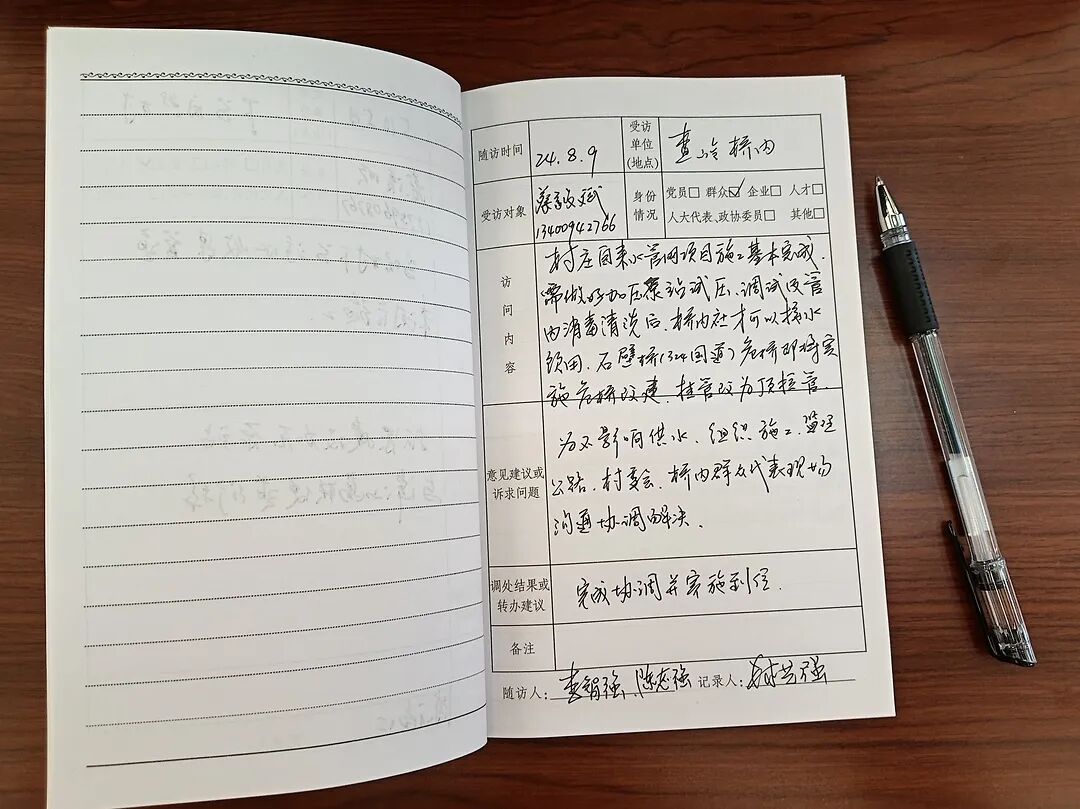 随访时间 24.8.9 受访单位(地点) 桥内
受访对象 13400942766 身份情况 党员□ 群众☑ 企业□ 人才□
人大代表、政协委员□ 其他□
访问内容
村庄自来水管网项目施工基本完成,
需做好加压泵站试压、调试及管
内消毒清洗后,桥内社才可以接水
使用,石壁桥(324国道)危桥即将实
施危桥改建,挂管改为顶拉管.
意见建议或诉求问题
为不影响供水,组织施工、监理
公路、村委会、桥内群众代表现场
沟通协调解决.
调处结果或转办建议 完成协调并实施到位.
备注
随访人: 记录人: